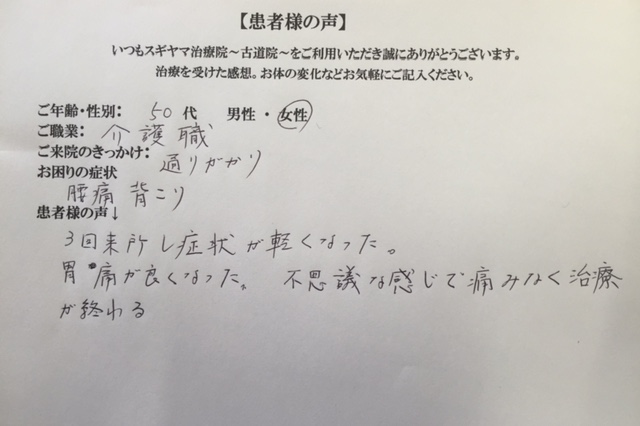 【患者様の声】
いつもスギヤマ治療院～古道院～をご利用いただき誠にありがとうございます。
治療を受けた感想。お体の変化などお気軽にご記入ください。
ご年齢・性別: 50 代 男性・女性
ご職業: 介護職
ご来院のきっかけ: 通りがかり
お困りの症状
腰痛 背こり
患者様の声↓
3回来所し症状が軽くなった。
胃痛が良くなった。 不思議な感じで痛みなく治療
が終わる